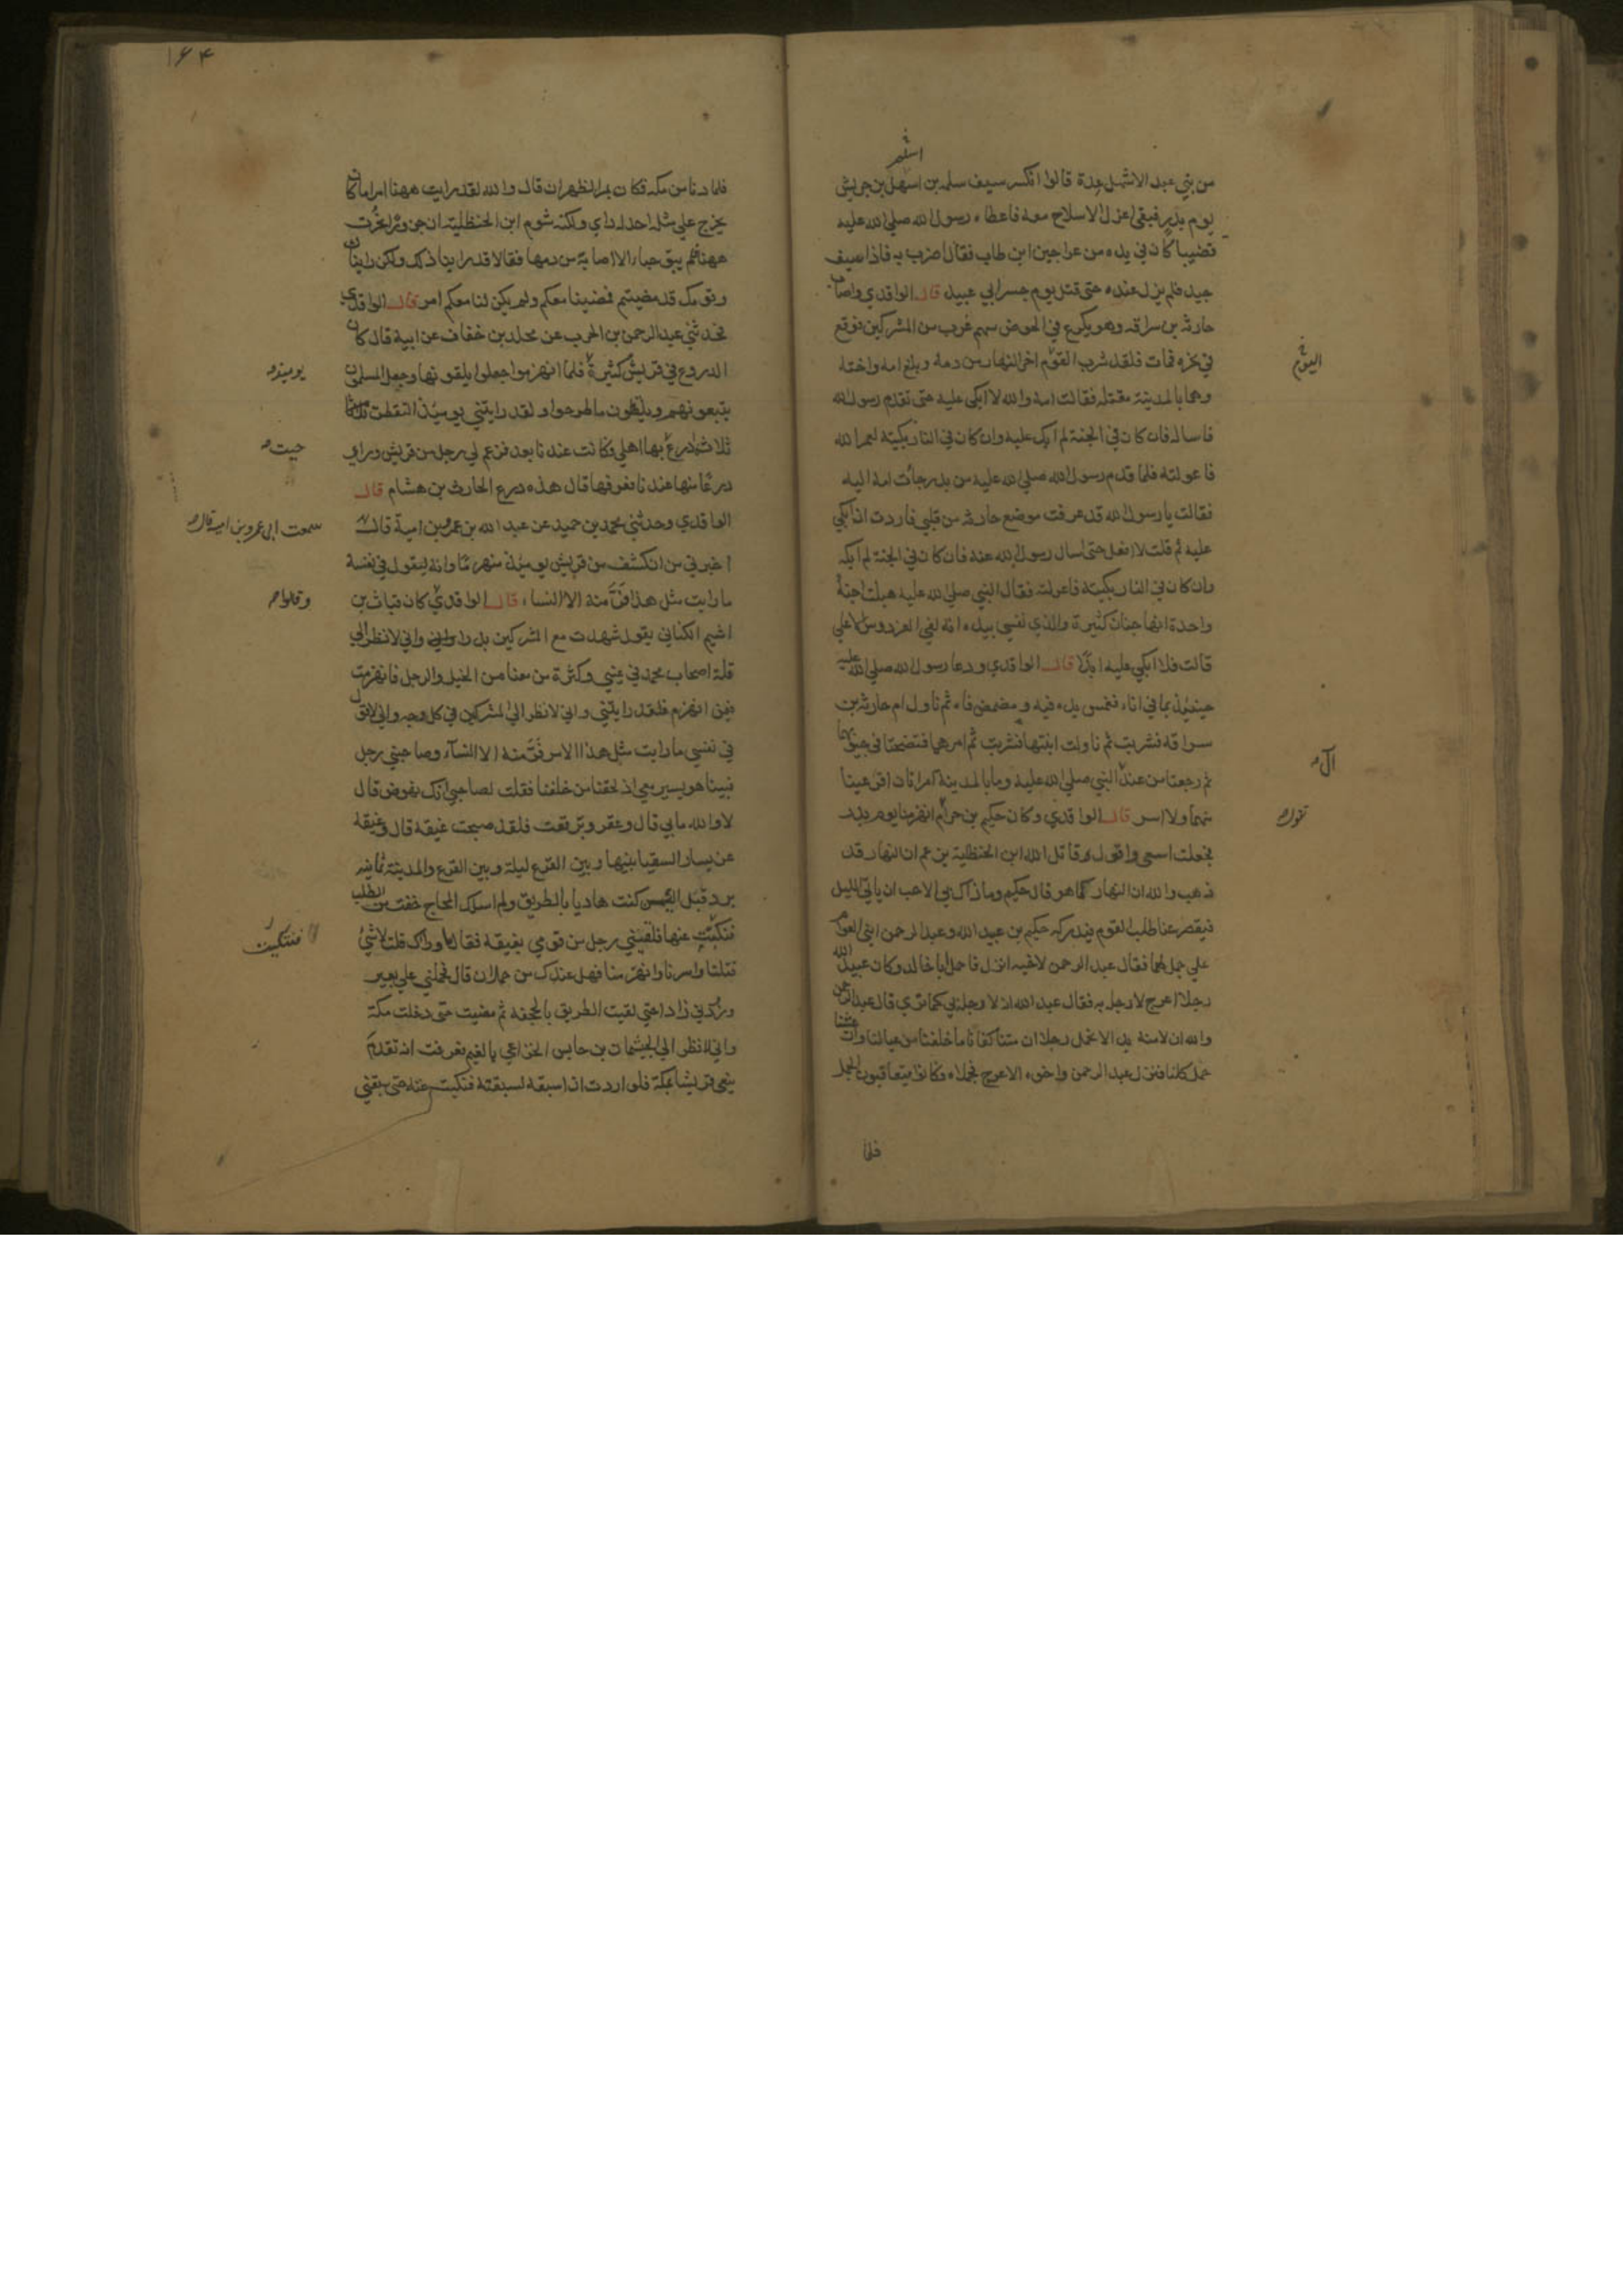 من بني عبد الاشهل عدة قالوا انكسر سيف سلمه بن اسهل بن جريش
يوم بدر فبقي اعزل لا سلاح معه فاعطاه رسول الله صلي الله عليه
قضيبا كان في يده من عراجين ابن طاب فقال اضرب به فاذا سيف
جيد فلم يزل عنده حتى قتل يوم جسر ابي عبيد قال الواقدي واصاب
حارثه بن سراقه وهو يكرع في الحوض سهم غرب من المشركين فوقع
في نحره فمات فلقد شرب القوم اخر النهار من دمه وبلغ امه واخته
اليوم
وهما بالمدينة مقتله فقالت امه والله لا ابكي عليه حتى تقدم رسول الله
فاساله فان كان في الجنة لم ابك عليه وان كان في النار بكيته لعمر الله
فاعولته فلما قدم رسول الله صلي الله عليه من بدر جأت امه اليه
فقالت يا رسول الله قد عرفت موضع حارثه من قلبي فاردت ان ابكي
عليه ثم قلت لا افعل حتى اسال رسول الله عنه فان كان في الجنة لم ابكه
وان كان في النار بكيته فاعولته فقال النبي صلي الله عليه هبلت اجنة
واحدة انها جنان كثيرة والذي نفسي بيده انه لفي الفردوس الاعلي
قالت فلا ابكي عليه ابدًا قال الواقدي ودعا رسول الله صلي الله عليه
حينيذ بما في اناء فغمس يده فيه ومضمض فاه ثم ناول ام حارثه بن
سراقة فشربت ثم ناولت ابنتها فشربت ثم امرهما فنضحتا في جيوبهما
ثم رجعتا من عند النبي صلي الله عليه وما بالمدينة امراتان اقر عينا
منهما ولا اسر قال الواقدي وكان حكيم بن حزام انهزمنا يوم بدر
فجعلت اسعى واقول قاتل الله ابن الحنظلية يزعم ان النهار قد
ذهب والله ان النهار كما هو قال حكيم وما ذاك بي الا حب ان ياتي الليل
فيقصر عنا طلب القوم فيدركه حكيم بن عبيد الله وعبد الرحمن ابني العوام
علي جمل لهما فقال عبد الرحمن لاخيه انزل فاحمل ابا خالد وكان عبيد الله
رجلا اعرج لا رجل به فقال عبد الله انه لا رجل بي كما تري قال عبد الرحمن
والله ان لا منه بد الا نحمل رجلا ان متنا كفانا ما خلفنا من عيالنا وان عشنا
حمل كلنا فنزل عبد الرحمن واخوه الاعرج فحملاه وكانوا يتعاقبون الجمل
فلما
١٦٤
فلما دنا من مكة فكان بمر الظهران قال والله لقد رايت ههنا امرا ما كان
يخرج علي مثله احد له راي ولكنه شوم ابن الحنظلية ان جزورا نحرت
ههنا فلم يبق خباء الا اصابة من دمها فقالا قد راينا ذلك ولكن رايناك
وقومك قد مضيتم فمضينا معكم ولم يكن لنا معكم امر قال الواقدي
فحدثني عبد الرحمن بن الحرب عن مخلد بن خفاف عن ابيه قال كان
الدروع في قريش كثيرة فلما انهزموا جعلوا يلقونها وجعل المسلمون
يوميذ
يتبعونهم ويلقطون ما طرحوا ولقد رايتني يوميذ التقطت
ثلاث ادرع بها اهلي وكانت عندنا بعد فزعم لي رجل من قريش وراي
جيت
درعًا منها عندنا فعرفها قال هذه درع الحارث بن هشام قال
الواقدي وحدثني محمد بن حميد عن عبد الله بن عمرو بن امية قال
سمعت ابي عمرو بن امية قال
اخبرني من انكشف من قريش يوميذ منهزمًا وانه ليقول في نفسه
ما رايت مثل هذا فرَّ منه الا النساء قال الواقدي كان قباث بن
وقالوا
اشيم الكناني يقول شهدت مع المشركين بدرا واني لانظر الي
قلة اصحاب محمد في عيني وكثرة من معنا من الخيل والرجل فانهزمت
فيمن انهزم فلقد رايتني واني لانظر الي المشركين في كل وجه واني لاقول
في نفسي ما رايت مثل هذا الامر فرَّ منه الا النسآء وصاحبني رجل
فبينا هو يسير معي اذ لحقنا من خلفنا فقلت لصاحبي ابك نهوض قال
لا والله ما بي قال وعقر وترفعت فلقد صبحت غيقة قال وغيقة
عن يسار السقيا بينها وبين الفرع ليلة وبين الفرع والمدينة ثمانية
برد قبل الشمس كنت هاديا بالطريق ولم اسلك المحاج خفت من الطلب
فتنكبت عنها فلقيني رجل من قومي بغيقة فقال ما وراك قلت لا شئ
فتنكبت
قتلنا واسرنا وانهزمنا فهل عندك من حملان قال فحملني علي بعير
وزودني زادا حتي لقيت الطريق بالجحفه ثم مضيت حتى دخلت مكة
واني لانظر الي الحيسمان بن حابس الخزاعي بالغميم فعرفت انه تقدم
ينعى قريشا بمكة فلو اردت ان اسبقه لسبقته فتنكبت عنه حتى سبقني